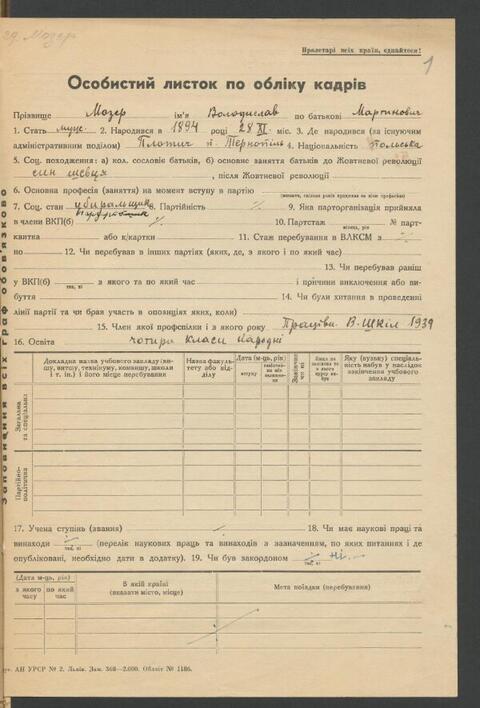 29. Мозер
Пролетарі всіх країн, єднайтеся!
1
Особистий листок по обліку кадрів
Прізвище Мозер ім'я Володислав по батькові Мартинович
1. Стать муж 2. Народився в 1894 році 28 XI міс. 3. Де народився (за існуючим
адміністративним поділом) Плотич п. Тернопіль 4. Національність польська
5. Соц. походження: а) кол. сословіє батьків, б) основне заняття батьків до Жовтневої революції
син шевця, після Жовтневої революції
6. Основна професія (заняття) на момент вступу в партію
7. Соц. стан 8. Партійність 9. Яка парторганізація прийняла
в члени ВКП(б) 10. Партстаж № парт-
квитка або к/картки 11. Стаж перебування в ВЛКСМ з
по 12. Чи перебував в інших партіях (яких, де, з якого і по який час)
13. Чи перебував раніш
у ВКП(б) так, ні з якого та по який час і причини виключення або ви-
буття 14. Чи були хитання в проведенні
лінії партії та чи брав участь в опозиціях яких, коли)
15. Член якої профспілки і з якого року Працівн. В-Шкіл 1939
16. Освіта чотири класи народні
Заповнення всіх граф обов'язково
Докладна назва учбового закладу (ви-
шу, втишу, технікуму, комвишу, школи
і т. ін.) і його місце перебування
Назва факуль-
тету або від-
ділу
Дата (м-ць, рік)
вступу
Закінчив чи ні
Яку (вузьку) спеціаль-
ність набув у наслідок
закінчення учбового
закладу
Загальна
та спеціальна
Партійно-
політична
17. Учена ступінь (звання) 18. Чи має наукові праці та
винаходи так, ні (перелік наукових праць та винаходів з зазначенням, по яких питаннях і де
опубліковані, необхідно дати в додатку). 19. Чи був закордоном ні
так, ні
(Дата м-ць, рік)
з якого часу
по який час
В якій країні
(вказати місто, місце)
Мета поїздки (перебування)
АН УРСР № 2. Львів. Зам. 368—2.000. Обліт № 1186.